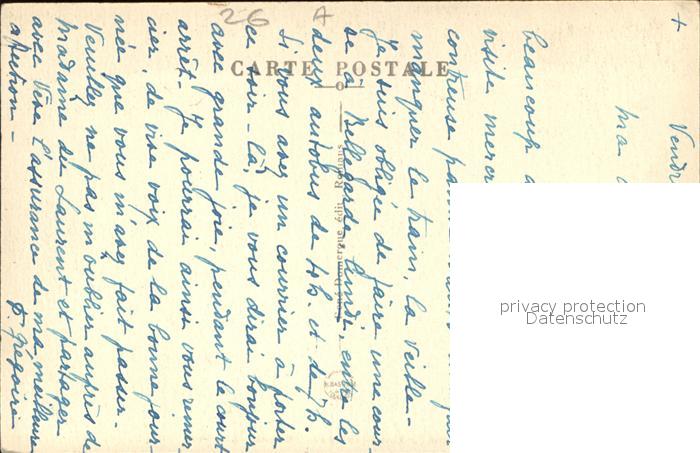 26 A
CARTE POSTALE
+ Vendr
Ma
beaucoup
visite mercr
contreuse
manquer le train, la veille-
Je suis obligé de faire une cour-
se à Bellegarde lundi, entre les
deux autobus de 4h. et de 7h.
Si vous avez un courrier à porter
ce soir-là, je vous dirai bonjour
avec grande joie, pendant le court
arrêt. Je pourrai ainsi vous remer-
cier, de vive voix de la bonne jour-
née que vous m'avez fait passer-
Veuillez ne pas m'oublier auprès de
Madame du Laurent et partager
avec Elle l'assurance de ma meilleure
affection-
privacy protection
Datenschutz